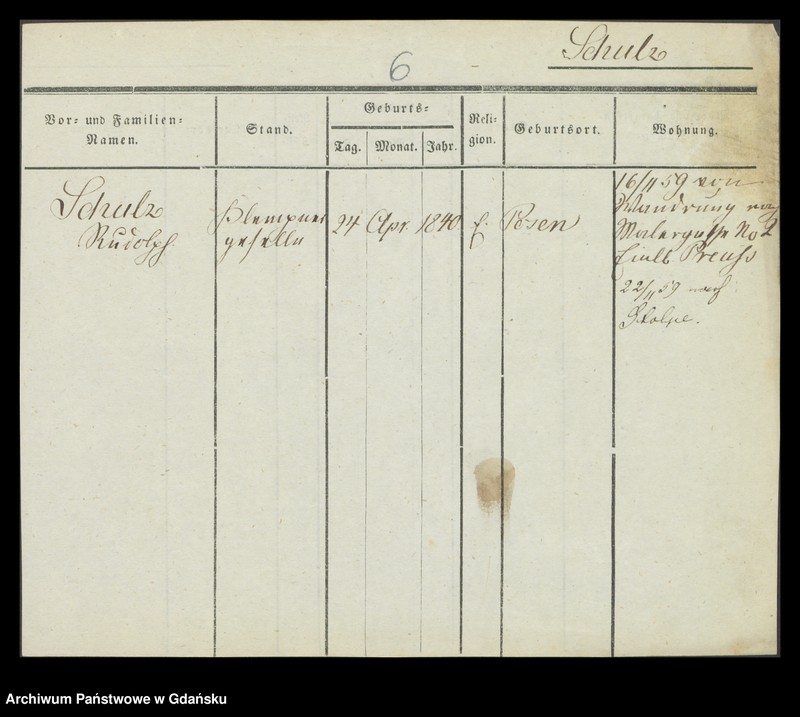 Schulz
6
Vor- und Familien-
Namen.
Stand.
Geburts-
Tag.
Monat.
Jahr.
Reli-
gion.
Geburtsort.
Wohnung.
Schulz
Rudolph
Klempner
geselle
24
Apr
1840
E.
Posen
16/11 59 von
Wandrung nach
Malergasse No 2
Preuss
22/11 59 nach
Stolpe.
Archiwum Państwowe w Gdańsku